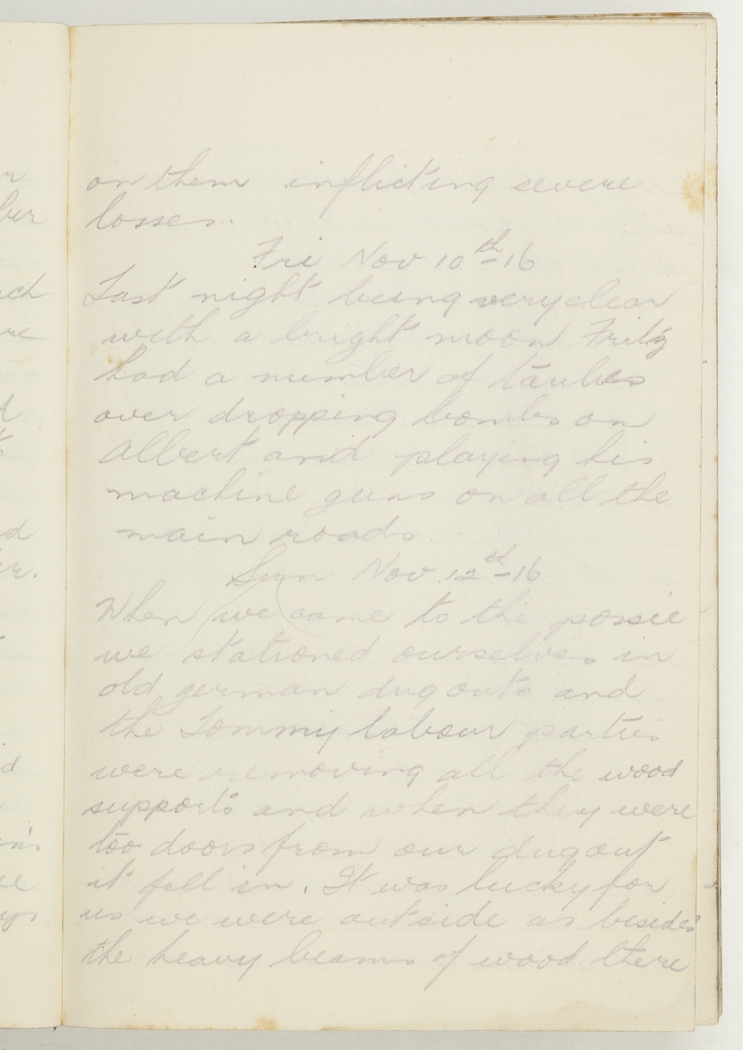 on them inflicting severe
losses.
Fri Nov 10th-16
Last night being very clear
with a bright moon Fritz
had a number of taubes
over dropping bombs on
Albert and playing his
machine guns on all the
main roads.
Sun Nov 12th-16
When we came to the possie
we stationed ourselves in
old german dugouts and
the Tommy labour parties
were removing all the wood
supports and when they were
too doors from our dugout
it fell in. It was lucky for
us we were outside as besides
the heavy beams of wood there